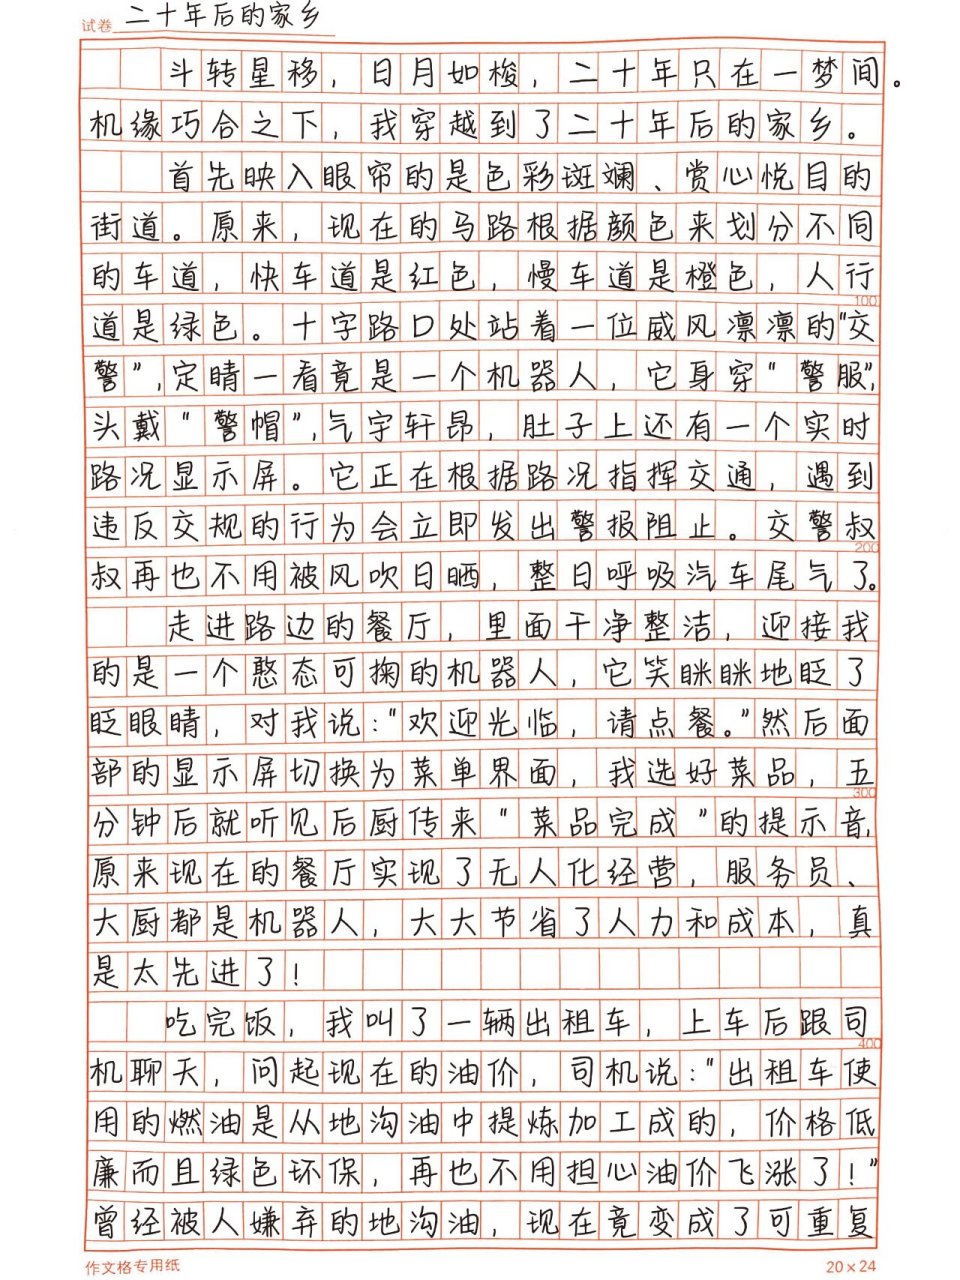 试卷 二十年后的家乡
斗转星移，日月如梭，二十年只在一梦间。
机缘巧合之下，我穿越到了二十年后的家乡。
首先映入眼帘的是色彩斑斓、赏心悦目的
街道。原来，现在的马路根据颜色来划分不同
的车道，快车道是红色，慢车道是橙色，人行
100
道是绿色。十字路口处站着一位威风凛凛的“交
警”，定睛一看竟是一个机器人，它身穿“警服”，
头戴“警帽”，气宇轩昂，肚子上还有一个实时
路况显示屏。它正在根据路况指挥交通，遇到
违反交规的行为会立即发出警报阻止。交警叔
200
叔再也不用被风吹日晒，整日呼吸汽车尾气了。
走进路边的餐厅，里面干净整洁，迎接我
的是一个憨态可掬的机器人，它笑眯眯地眨了
眨眼睛，对我说：“欢迎光临，请点餐。”然后面
部的显示屏切换为菜单界面，我选好菜品，五
300
分钟后就听见后厨传来“菜品完成”的提示音，
原来现在的餐厅实现了无人化经营，服务员、
大厨都是机器人，大大节省了人力和成本，真
是太先进了！
吃完饭，我叫了一辆出租车，上车后跟司
400
机聊天，问起现在的油价，司机说：“出租车使
用的燃油是从地沟油中提炼加工成的，价格低
廉而且绿色环保，再也不用担心油价飞涨了！”
曾经被人嫌弃的地沟油，现在竟变成了可重复
作文格专用纸 20×24